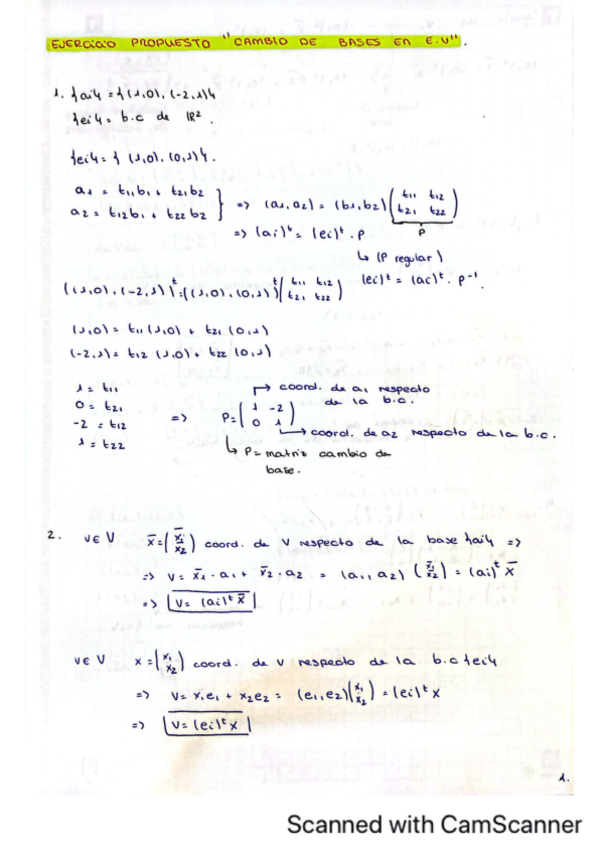 EJERCICIO PROPUESTO "CAMBIO DE BASES EN E.V".
1. {ai} = {(1,0), (-2,1)}
{ei} = b.c de IR².
{ei} = { (1,0), (0,1)}.
a1 = t11b1 + t21b2
a2 = t12b1 + t22b2 } => (a1,a2) = (b1,b2) ( t11 t12 / t21 t22 ) P
=> (ai)ᵗ = (ei)ᵗ · P
↳ (P regular)
((1,0), (-2,1))ᵗ = ((1,0), (0,1))ᵗ ( t11 t12 / t21 t22 ) (ei)ᵗ = (ai)ᵗ · P⁻¹.
(1,0) = t11 (1,0) + t21 (0,1)
(-2,1) = t12 (1,0) + t22 (0,1)
1 = t11
0 = t21
-2 = t12
1 = t22
=> P = ( 1 -2 / 0 1 )
→ coord. de a1 respecto de la b.c.
→ coord. de a2 respecto de la b.c.
↳ P = matriz cambio de base.
2. v∈V x̄ = ( x̄1 / x̄2 ) coord. de V respecto de la base {ai} =>
=> v = x̄1 · a1 + x̄2 · a2 = (a1, a2) ( x̄1 / x̄2 ) = (ai)ᵗ x̄
=> v = (ai)ᵗ x̄
v∈V x = ( x1 / x2 ) coord. de v respecto de la b.c {ei}
=> v = x1e1 + x2e2 = (e1, e2) ( x1 / x2 ) = (ei)ᵗ x
=> v = (ei)ᵗ x
1.
Scanned with CamScanner